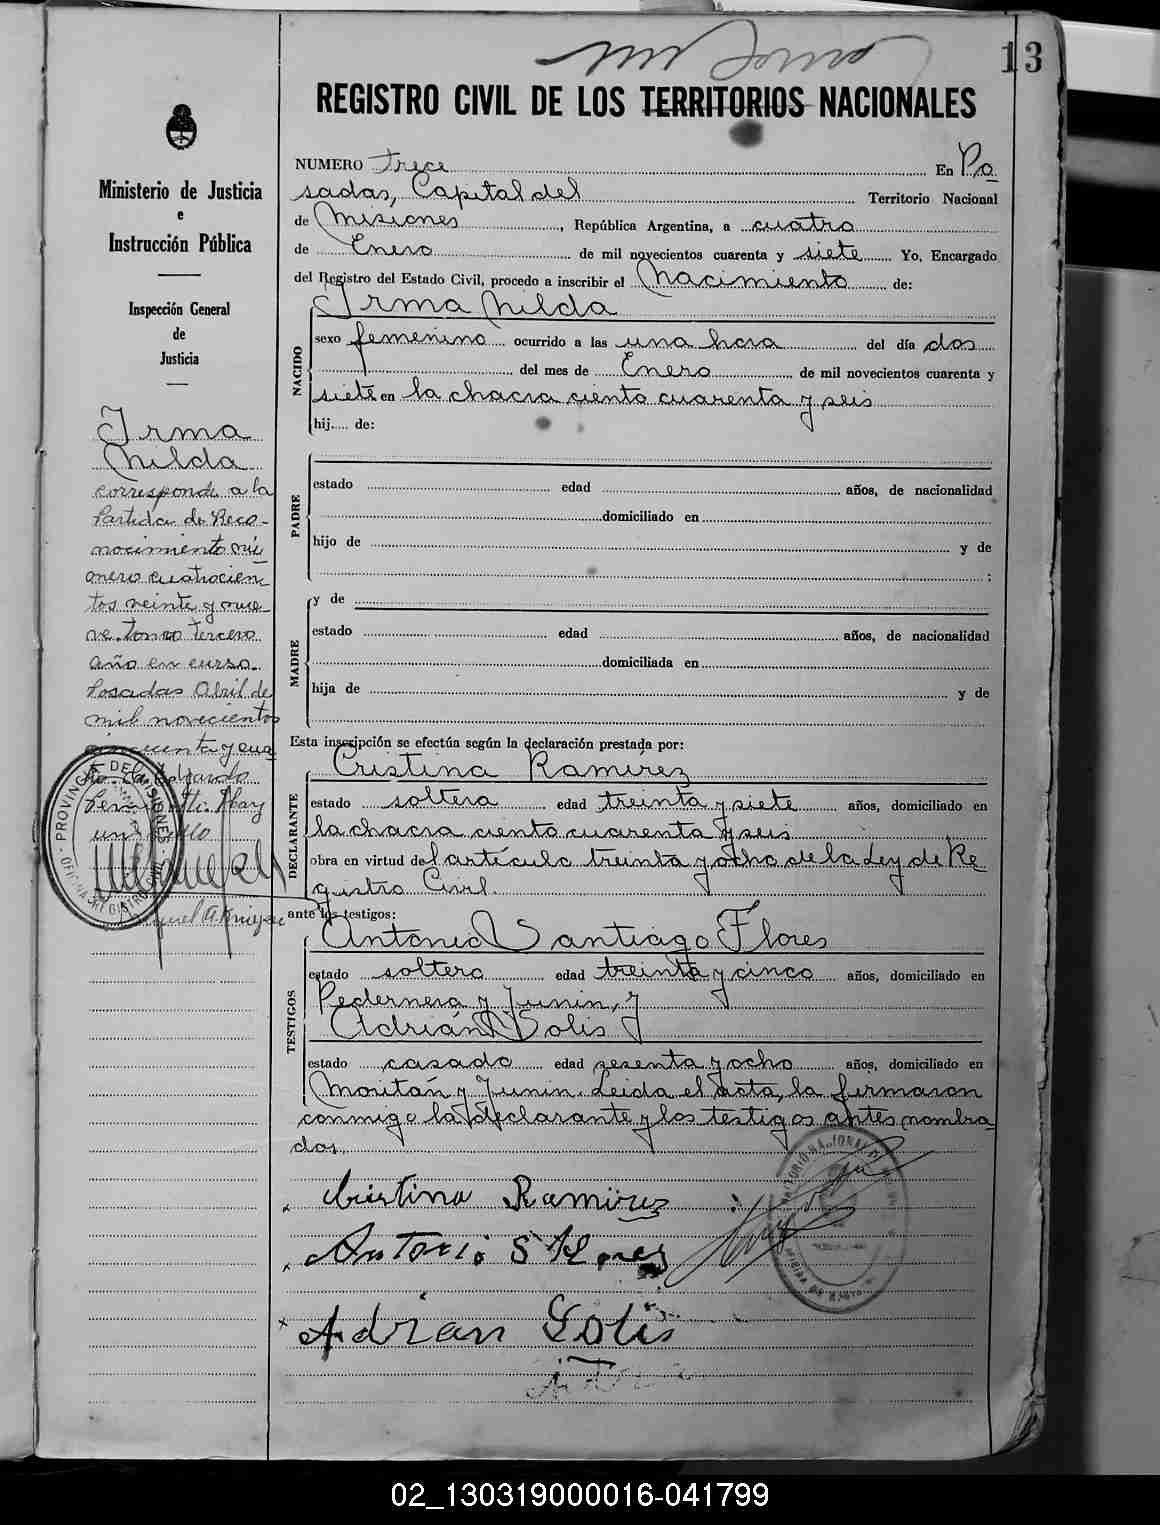 13
REGISTRO CIVIL DE LOS TERRITORIOS NACIONALES
Ministerio de Justicia
e
Instrucción Pública
Inspección General
de
Justicia
Irma
Nilda
corresponde a la
Partida de Reco-
nocimiento nú
mero cuatrocien
tos veinte y nue
ve tomo tercero
año en curso.
Posadas Abril de
mil novecientos
cincuenta y cua
PROVINCIA DE MISIONES
NUMERO Trece En Po
sadas, Capital del Territorio Nacional
de Misiones, República Argentina, a cuatro
de Enero de mil novecientos cuarenta y siete Yo, Encargado
del Registro del Estado Civil, procedo a inscribir el Nacimiento de:
NACIDO
Irma Nilda
sexo femenino ocurrido a las una hora del día dos
del mes de Enero de mil novecientos cuarenta y
siete en la chacra ciento cuarenta y seis
hij.... de:
PADRE
estado edad años, de nacionalidad
domiciliado en
hijo de y de
;
MADRE
y de
estado edad años, de nacionalidad
domiciliada en
hija de y de
Esta inscripción se efectúa según la declaración prestada por:
DECLARANTE
Cristina Ramirez
estado soltera edad treinta y siete años, domiciliado en
la chacra ciento cuarenta y seis
obra en virtud del artículo treinta y ocho de la Ley de Re
gistro Civil.
ante los testigos:
TESTIGOS
Antonio Santiago Flores
estado soltero edad treinta y cinco años, domiciliado en
Pedernera y Junin, y
Adrián Solis
estado casado edad sesenta y ocho años, domiciliado en
Moritán y Junin. Leida el acta, la firmaron
conmigo la declarante y los testigos antes nombra
dos.
Cristina Ramirez
Antonio S Flores
Adrian Solis
02_130319000016-041799